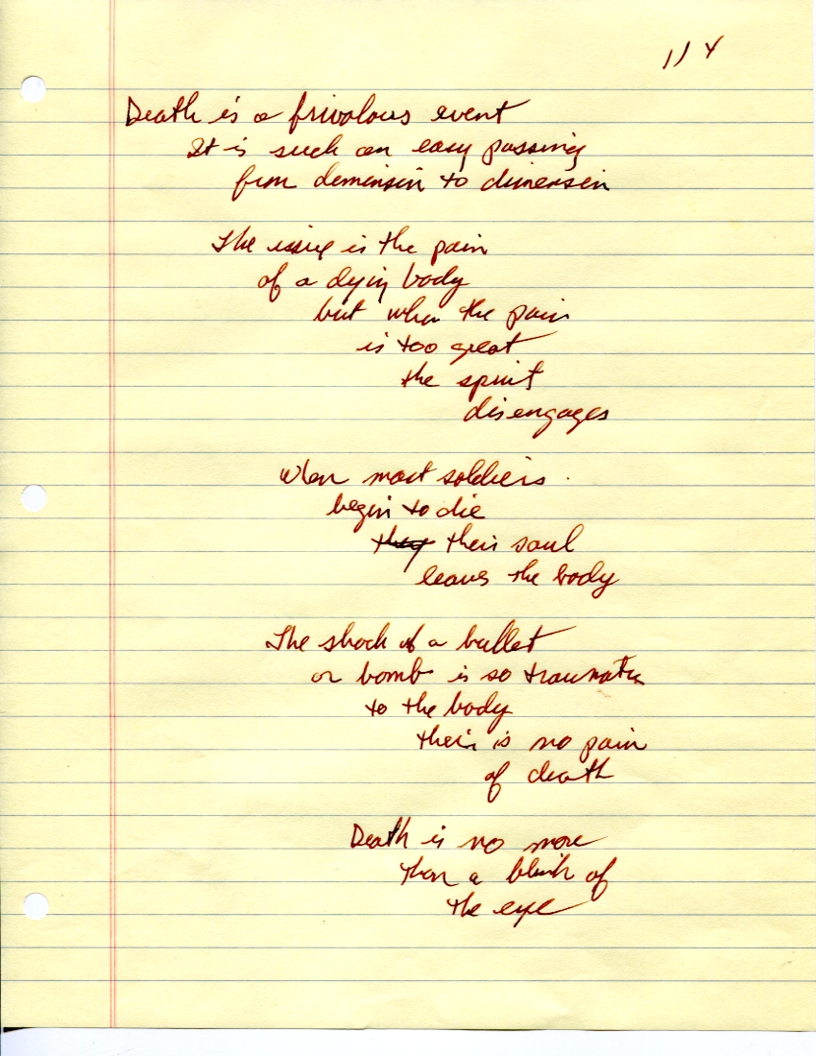 114
Death is a frivolous event
It is such an easy passing
from demension to dimension
The issue is the pain
of a dying body
but when the pain
is too great
the spirit
disengages
When most soldiers
begin to die
they their soul
leaves the body
The shock of a bullet
or bomb is so traumatic
to the body
their is no pain
of death
Death is no more
than a blink of
the eye